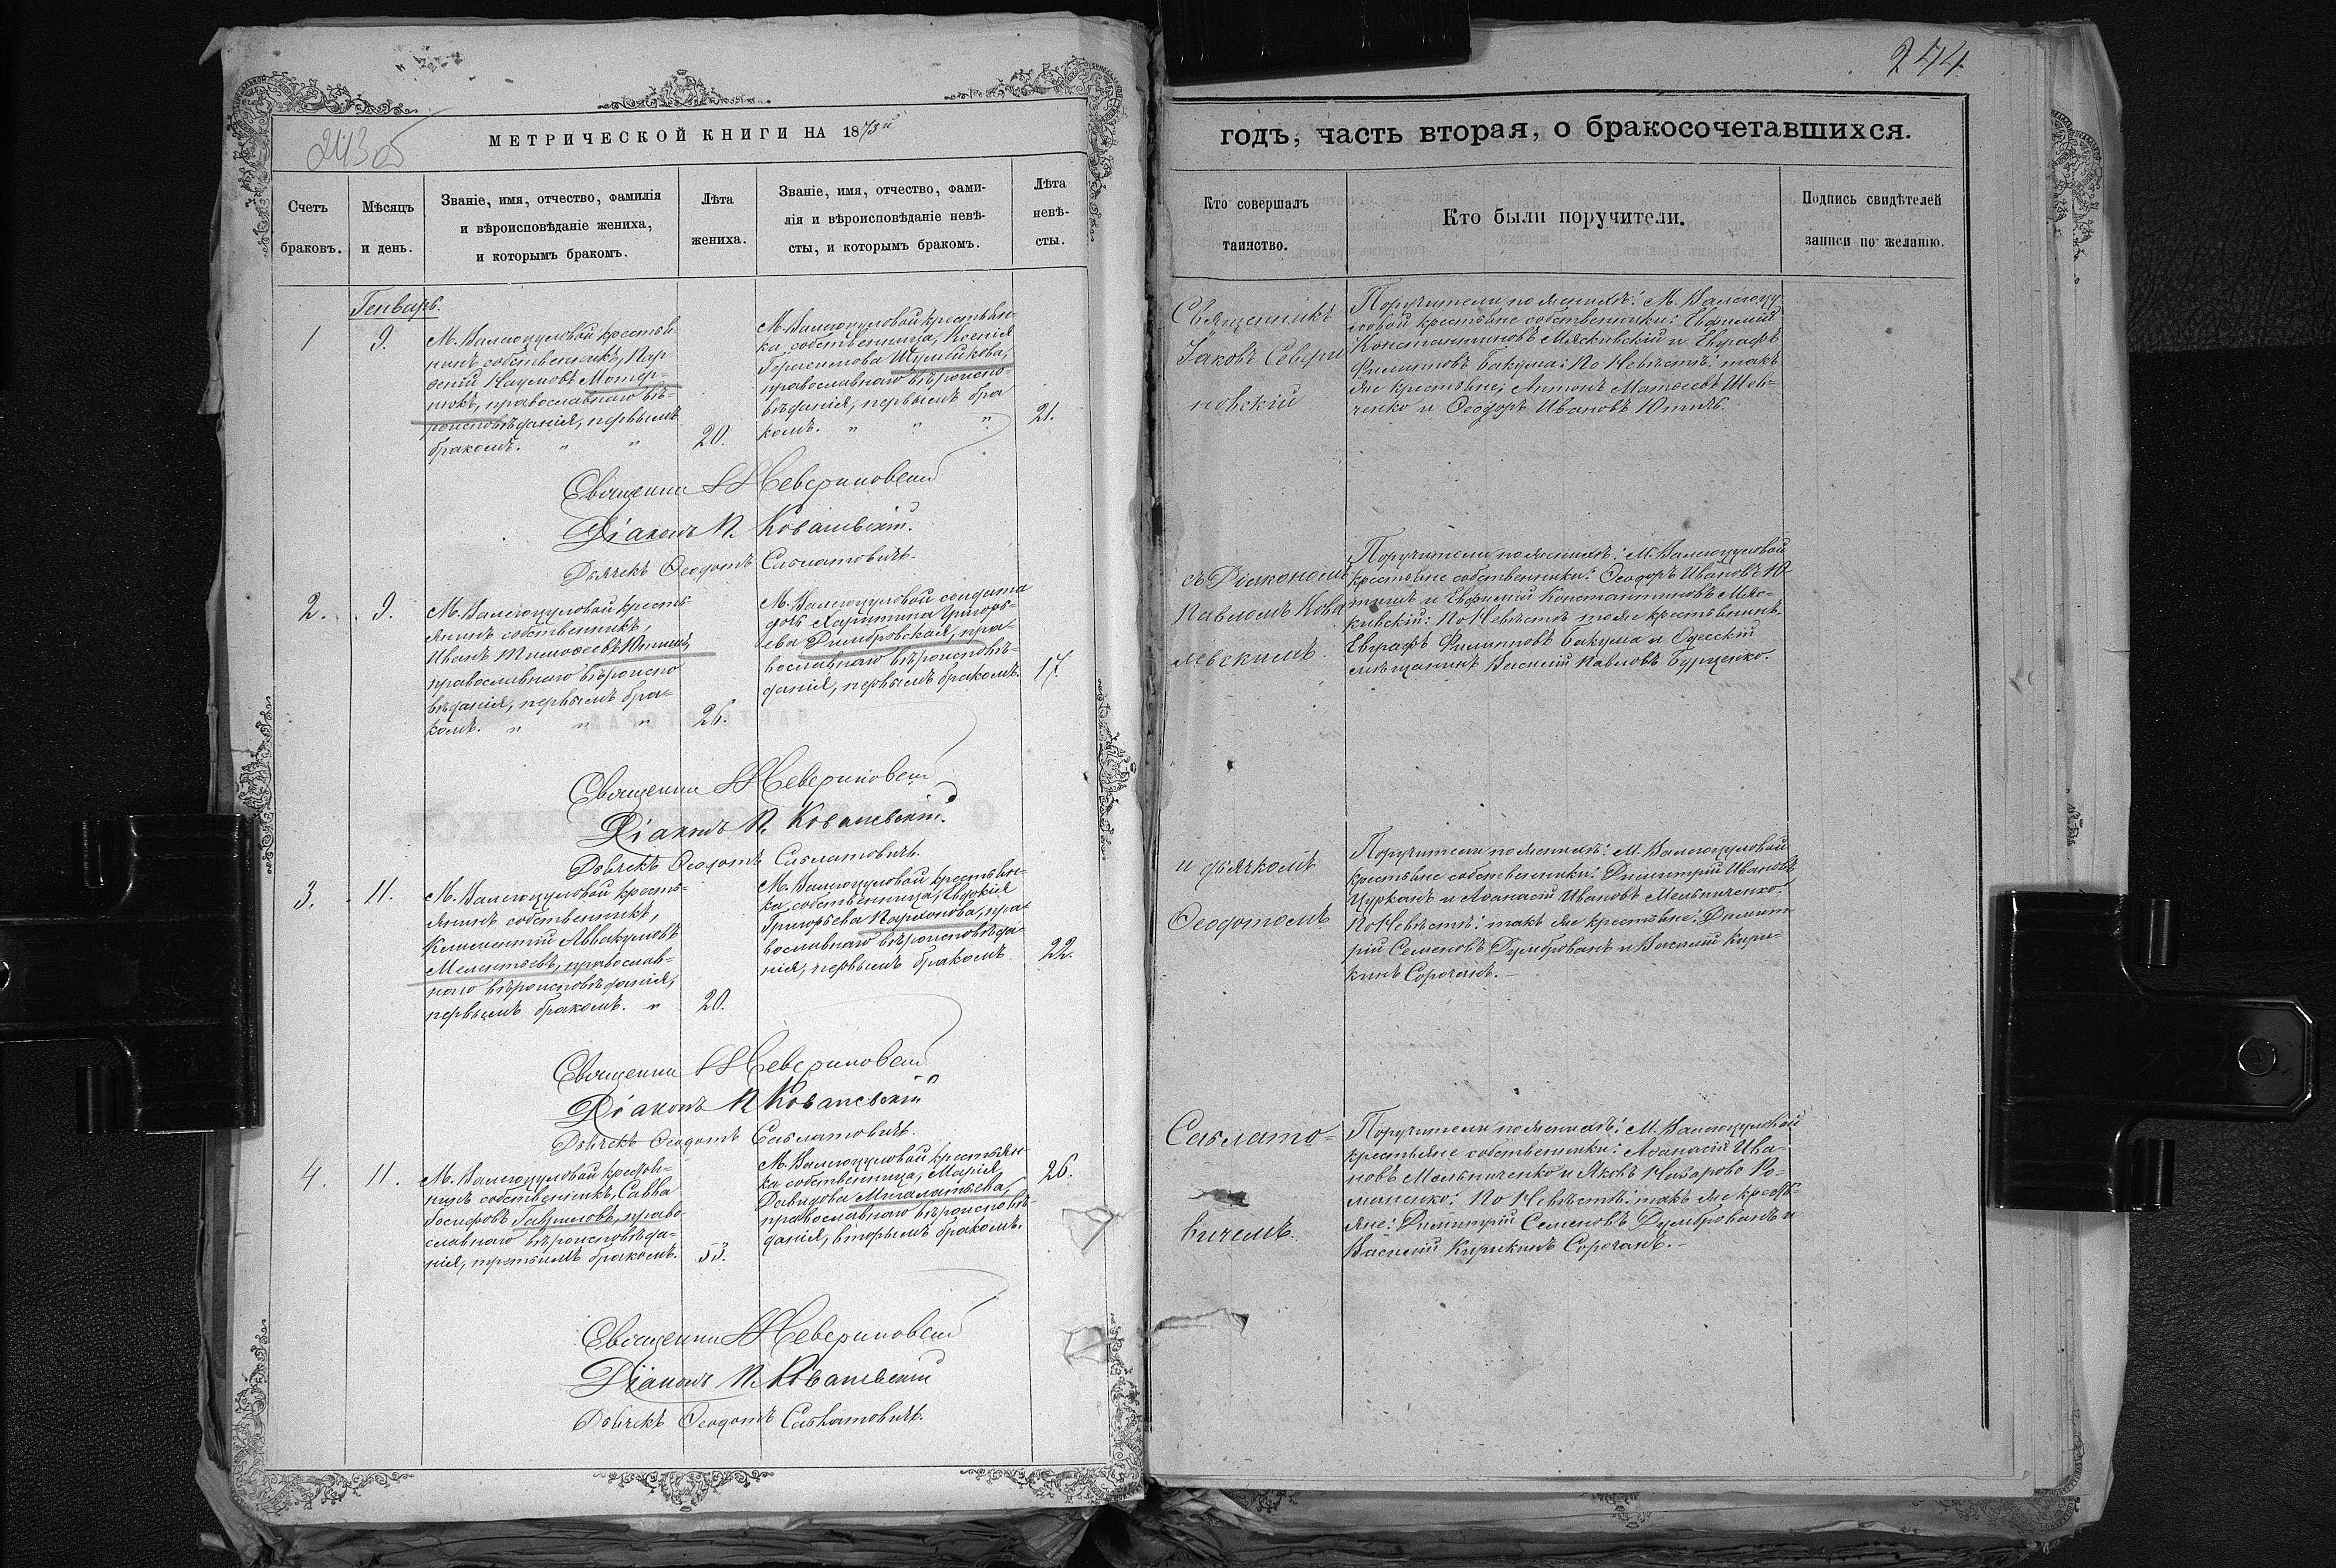 243 об
МЕТРИЧЕСКОЙ КНИГИ НА 1873й
Счетъ
браковъ.
Мѣсяцъ
и день.
Званіе, имя, отчество, фамилія
и вѣроисповѣданіе жениха,
и которымъ бракомъ.
Лѣта
жениха.
Званіе, имя, отчество, фами-
лія и вѣроисповѣданіе невѣ-
сты, и которымъ бракомъ.
Лѣта
невѣ-
сты.
Генварь.
1
9.
М. Валегоцуловой крестья
нинъ собственникъ, Пар-
фений Наумовъ Мотер-
нюкъ, православнаго вѣ-
роисповѣданія, первымъ
бракомъ. " "
20.
М. Валегоцуловой крестьян-
ка собственница, Ксенія
Герасимова
православнаго вѣроиспо-
вѣданія, первымъ бра
комъ. " " "
21.
Священник Севериновский
Діаконъ П. Ковалевскій.
Дьячекъ Феодотъ Саблатовичъ.
2.
9.
М. Валегоцуловой кресть-
янинъ собственникъ,
Иванъ Тимофеевъ Ютишъ,
православнаго вѣроиспо
вѣданія, первымъ бра-
комъ. " " "
26.
М. Валегоцуловой солдата
дочь Харитина Григорь-
ева Димбровская, пра-
вославнаго вѣроисповѣ-
данія, первымъ бракомъ.
17.
Священник Севериновский
Діаконъ П. Ковалевскій.
Дьячекъ Феодотъ Саблатовичъ.
3.
11.
М. Валегоцуловой кресть-
янинъ собственникъ,
Климентій Аввакумовъ
Мелентьевъ, православ-
наго вѣроисповѣданія,
первымъ бракомъ. "
20.
М. Валегоцуловой крестьян-
ка, собственница, Евдокія
Григорьева Парфонова, пра-
вославнаго вѣроисповѣда-
нія, первымъ бракомъ
22.
Священник Севериновский
Діаконъ П. Ковалевскій
Дьячекъ Феодотъ Саблатовичъ.
4.
11.
М. Валегоцуловой крестья-
нинъ собственникъ, Савва
Іосифовъ Гавриловъ, право-
славнаго вѣроисповѣда-
нія, третьимъ бракомъ.
53.
М. Валегоцуловой крестьян-
ка собственница, Марія
Давидова
православнаго вѣроисповѣ-
данія, вторымъ бракомъ.
26.
Священник Севериновский
Діаконъ П. Ковалевскій
Дьячекъ Феодотъ Саблатовичъ.
244
годъ, часть вторая, о бракосочетавшихся.
Кто совершалъ
таинство.
Кто были поручители.
Подпись свидѣтелей
записи по желанію.
Священникъ
Іаковъ Севери
новскій
съ Діакономъ
Павломъ Кова
левскимъ.
и дьячкомъ
Феодотомъ
Саблато-
вичемъ.
Поручители по женихѣ: М. Валегоцу-
ловой крестьяне собственники: Евфимій
Константиновъ Мясковскій и Евграфъ
Филиповъ Бакума: По Невѣстѣ: такъ
же крестьяне; Антонъ Матвеевъ Шев-
ченко и Феодоръ Ивановъ Ютишъ.
Поручители по женихѣ: М. Валегоцуловой
крестьяне собственники: Феодоръ Ивановъ Ю-
тишъ и Евфимій Константиновъ Мяс-
ковскій: По Невѣстѣ тоже крестьянинъ
Евграфъ Филиповъ Бакума и Одесскій
мѣщанинъ Василій Павловъ Бурценко.
Поручители по женихѣ: М. Валегоцуловой
крестьяне собственники: Димитрій Ивановъ
Цурканъ и Афанасій Ивановъ Мельниченко.
По Невѣстѣ: такъ же крестьяне: Димит-
рій Семеновъ Думброванъ и Василій Кири-
кинъ Сорочанъ.
Поручители по женихѣ: М. Валегоцуловой
крестьяне собственники: Афанасій Ива-
новъ Мельниченко и Яковъ Назарова Ро-
маненко: По Невѣстѣ: такъ же кресть-
яне: Димитрій Семеновъ Думброванъ и
Василій Кирикинъ Сорочанъ.